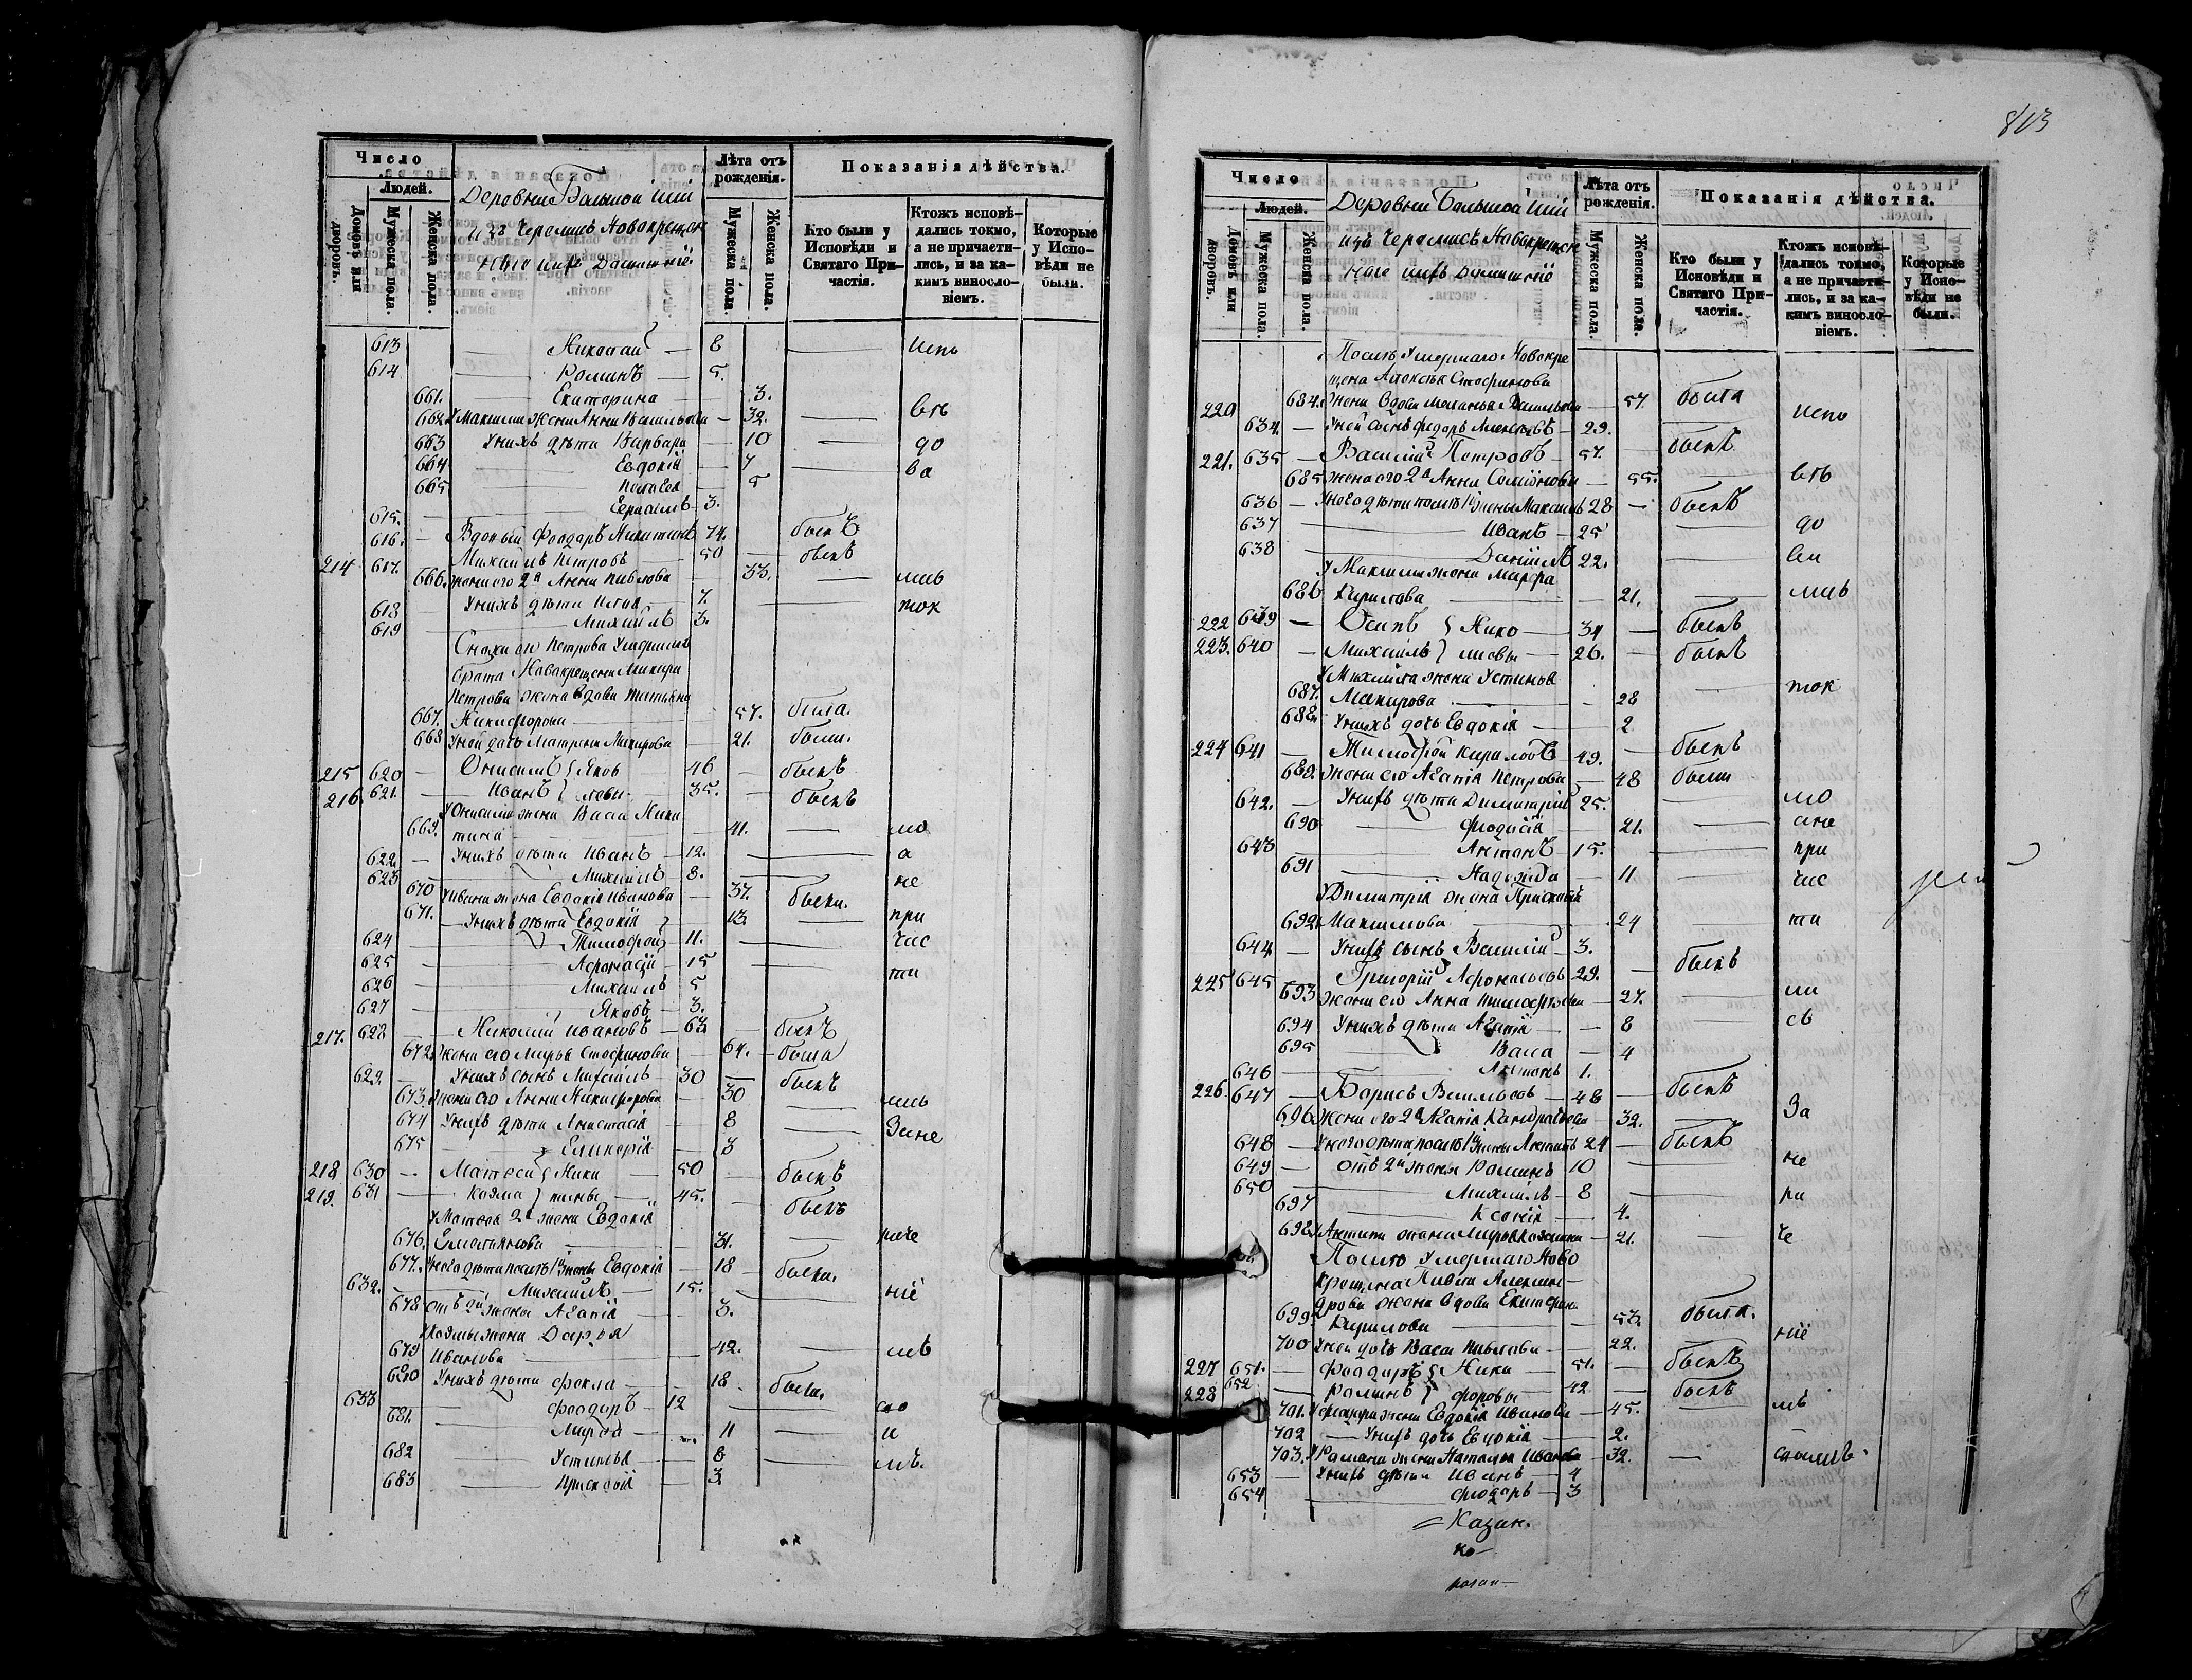 Число
Людей.
Домовъ или дворовъ.
Мужеска пола.
Женска пола.
Деревни Большой Ший
изъ Черемисъ Новокрещен
ные ихъ Домашніе
Лѣта отъ рожденія.
Мужеска пола.
Женска пола.
Показанія дѣйства.
Кто были у Исповѣди и Святаго Причастія.
Ктожъ исповѣдались токмо, а не причастились, и за какимъ винословіемъ.
Которые у Исповѣди не были.
613 Николай 8 испо
614 Романъ 5.
661. Екатерина 3.
662. У Максима жена Анна Васильева 32. вѣ
663 У нихъ дѣти Варвара 10 до
664 Евдокія 7 ва
665 Пелагея 5
615. Герасимъ 3.
616. Вдовый Феодоръ Никитинъ 74. былъ
214 617. Михаилъ Петровъ 50 былъ
666. жена его 2я Анна Павлова 33. лись
618 У нихъ дѣти Илья 7. ток
619 Михаилъ 3.
Петрова Умершаго
брата Новокрещена Макара
Петрова жена вдова Татьяна
667. Никифорова 57. была.
668 У ней дочь Матрена Макарова 21. была.
215 620 Онисимъ } Яков 46 былъ
216 621. Иванъ } левы 35. былъ
У Онисима жена Васа Ники
669. тина 41. мо
622 У нихъ дѣти Иванъ 12. а
623 Михаилъ 8.
670 У Ивана жена Евдокія Иванова 37. была. не
671. У нихъ дѣти Евдокія 13. при
624 Тимофей 11. час
625 Афонасій 15
626 Михаилъ 5 ти
627 Яковъ 3.
217. 628 Николай Ивановъ 63 былъ
672. Жена его Марья Стефанова 64. была
629. У нихъ сынъ Михаилъ 30 былъ
673. Жена его Анна Никифорова 30 лись
674 У нихъ дѣти Анастасія 8 За не
675 Гликерія 3
218 630 Матвей } Ники 50 былъ
219. 631 Козма } тины 45. былъ
У Матвея 2я жена Евдокія
676. Емельянова 31. рече
677. У него дѣти после 1й жены Евдокія 18 была.
632. Михаилъ 15. ніе
678 отъ 2й жены Агапія 3.
У Козмы жена Дарья
679 Иванова 42. мъ
680 У нихъ дѣти Фекла 18 была.
633 Феодоръ 12
681. Марфа 11 и
682 Устинья 8 мъ.
683 Прасковія 3

813
Число
Людей.
Домовъ или дворовъ.
Мужеска пола.
Женска пола.
Деревни Большой Ший
изъ Черемисъ Новокрещен
ные ихъ Домашніе
Лѣта отъ рожденія.
Мужеска пола.
Женска пола.
Показанія дѣйства.
Кто были у Исповѣди и Святаго Причастія.
Ктожъ исповѣдались токмо, а не причастились, и за какимъ винословіемъ.
Которые у Исповѣди не были.
Послѣ Умершаго Новокре
щена Алексѣя Стефанова
220 684. Жена вдова Маланья Васильева 57 была
634. У ней сынъ Федоръ Алексѣевъ 29. испо
221. 635 Василій Петровъ 57. былъ
685 Жена его 2я Анна Семіонова 55. вѣ
636 У него дѣти после 1й жены Максимъ 28 былъ
637 Иванъ 25 до
638 Даніилъ 22. ва
У Максима жена Марфа
686 Кирилова 21. лись
222 639 Осипъ } Нико 34 былъ
223. 640 Михаилъ } лаевы 26. былъ
У Михаила жена Устинья
687. Макарова 28 ток
688. У нихъ дочь Евдокія 2
224 641 Тимофей Кириловъ 49. былъ
689. Жена его Агапія Петрова 48 была
642. У нихъ дѣти Димитрій 25. мо
690 Феодосія 21. а не
643 Антонъ 15. при
691 Надежда 11 час
У Димитрія жена Прасковья
692. Максимова 24 ти
644. У нихъ сынъ Василій 3.
225 645 Григорій Афонасьевъ 29. былъ
693 Жена его Анна Тимофѣева 27. ли
694 У нихъ дѣти Агапія 8 сь
695 Васа 4
646 1.
226. 647 Борисъ Васильевъ 48 былъ
696 Жена его 2я Агапія Кандратьева 32. За
648 У него дѣти после 1й жены Антипъ 24 былъ
649 отъ 2й жены Романъ 10 не
650 Михаилъ 8 ра
697 Ксенія 4.
698. У Антипа жена Марья Козмина 21. че
Послѣ Умершаго Ново
крещена Павла Алексан
дрова жена вдова Екатерина
699. Кирилова 53. была.
700 У ней дочь Васа Павлова 22. ніе
227 651. Феодоръ } Ники 51. былъ
228 652 Романъ } форовы 42 былъ
701. У Феодора жена Евдокія Иванова 45. мъ
702 У нихъ дочь Евдокія 2.
703. У Романа жена Наталья Иванова 32.
653 У нихъ дѣти Иванъ 4
654 Феодоръ 3
Казан.
ко